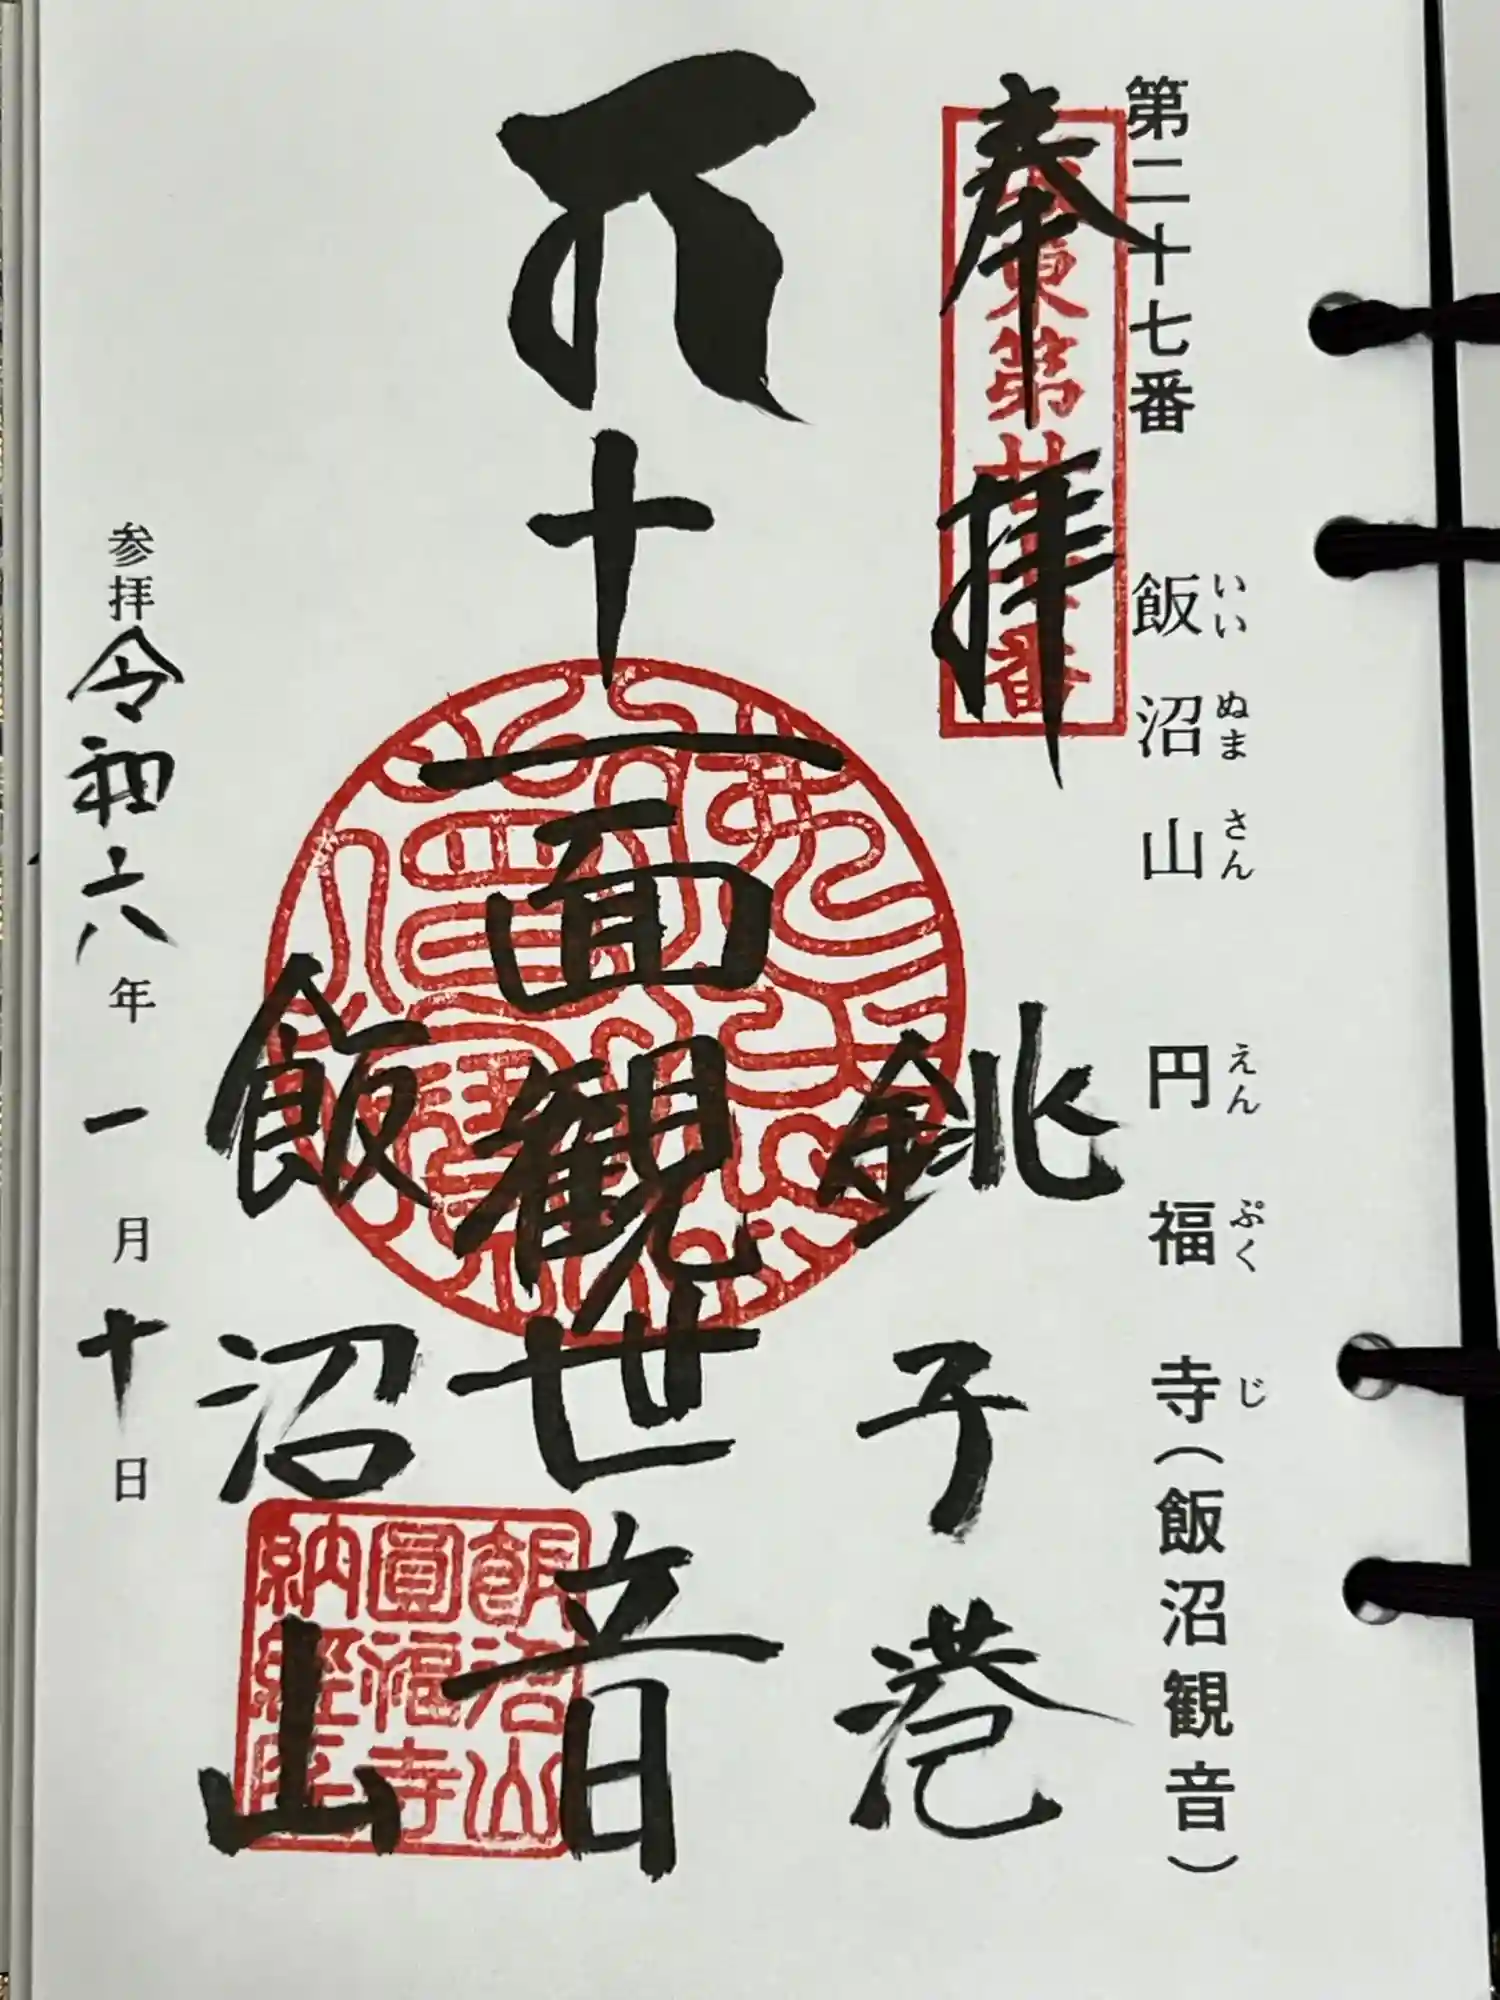 第二十七番 飯沼山 円福寺(飯沼観音)
いいぬまさん えんぷくじ
奉拝
東第
番
銚子港
十一面観世音
飯沼山
飯沼山
圓福寺
納経
参拝 令和六年 一月 十日